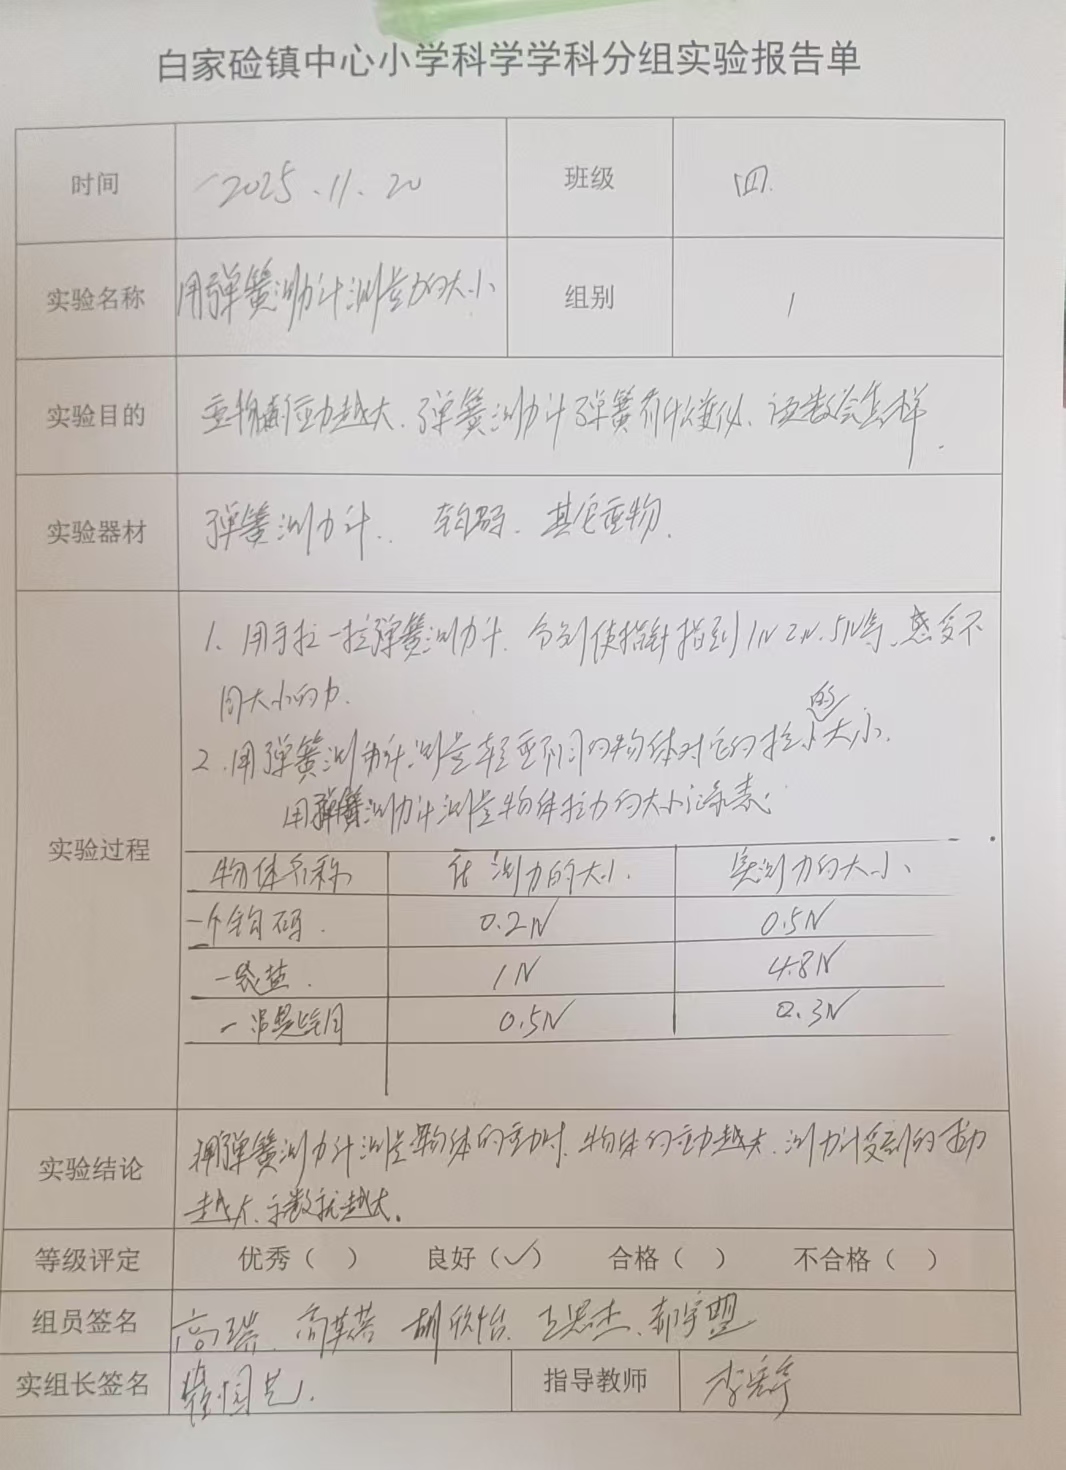 白家硷镇中心小学科学学科分组实验报告单
时间 2025.11.20 班级 四.
实验名称 用弹簧测力计测量力的大小 组别 1
实验目的 重物重力越大、弹簧测力计弹簧有什么变化、读数会怎样.
实验器材 弹簧测力计. 钩码. 其它重物.
实验过程
1. 用手拉一拉弹簧测力计. 分别使指针指到1N 2N.5N等、感受不
同大小的力.
2.用弹簧测力计测量轻重不同的物体对它的拉力的大小.
用弹簧测力计测量物体拉力的大小记录表:
物体名称 估测力的大小. 实测力的大小、
一个钩码. 0.2N 0.5N
一袋盐. 1N 4.8N
一串钥匙 0.5N 0.3N
实验结论 用弹簧测力计测量物体的重力时、物体的重力越大.测力计受到的拉力
越大、示数就越大。
等级评定 优秀（ ） 良好（✓） 合格（ ） 不合格（ ）
组员签名 高瑞、 胡欣怡、王思杰、郝宇盟
实组长签名 指导教师